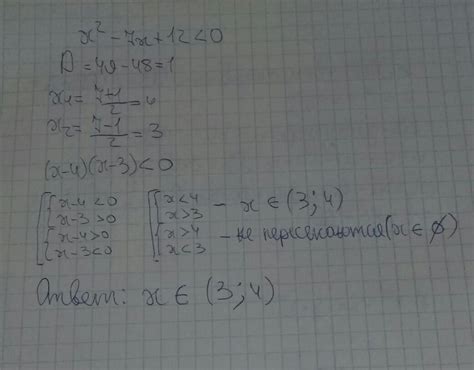 x² - 7x + 12 < 0
D = 49 - 48 = 1
x₁ = (7+1)/2 = 4
x₂ = (7-1)/2 = 3
(x-4)(x-3) < 0
[ { x-4 < 0 [ { x < 4 - x ∈ (3; 4)
x-3 > 0 x > 3
{ x-4 > 0 { x > 4 - не пересекаются (x ∈ ∅)
x-3 < 0 x < 3
Ответ: x ∈ (3; 4)